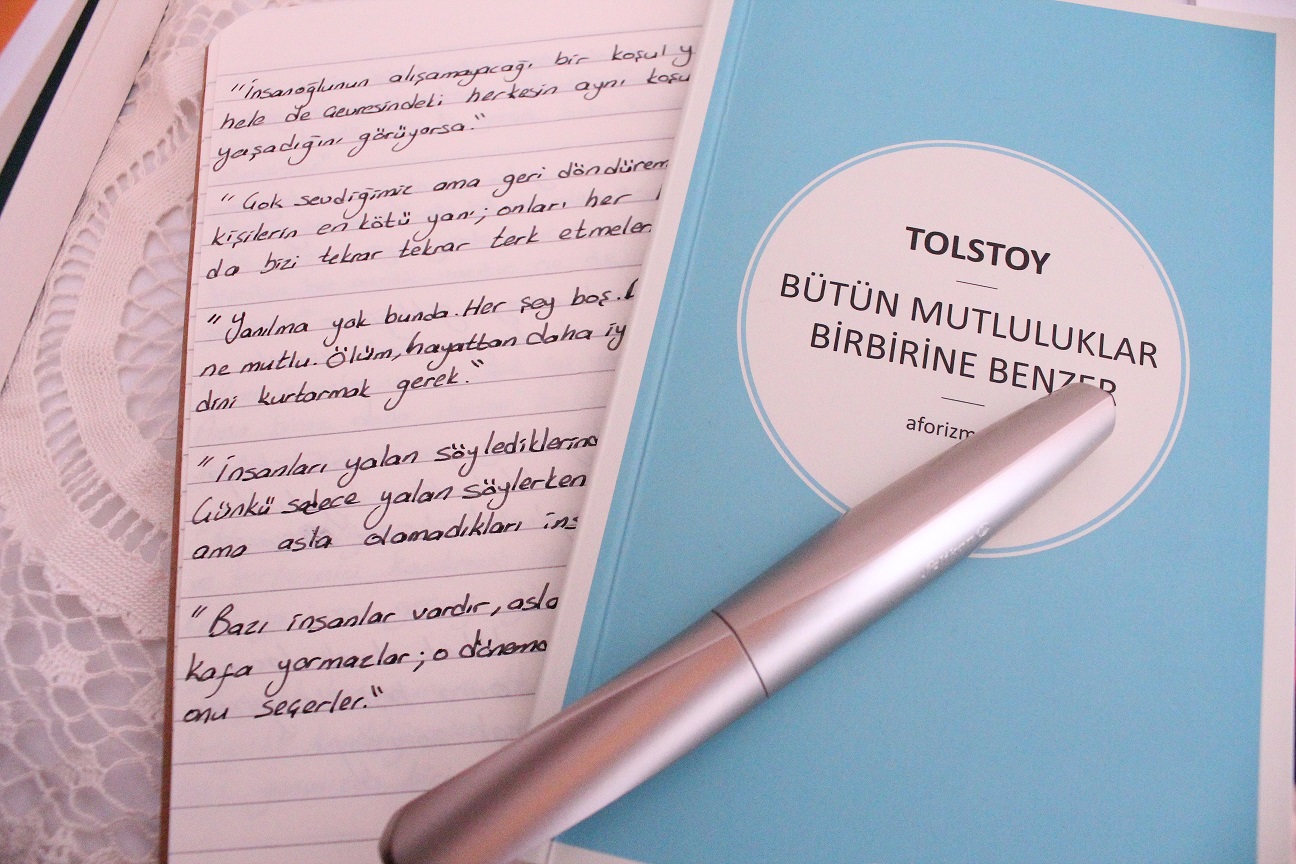 "İnsanoğlunun alışamayacağı bir koşul y
hele de çevresindeki herkesin aynı koşu
yaşadığını görüyorsa."
"Çok sevdiğimiz ama geri döndürem
kişilerin en kötü yanı; onları her
da bizi tekrar tekrar terk etmeler
"Yanılma yok bunda. Her şey boş.
ne mutlu. Ölüm, hayattan daha iy
dini kurtarmak gerek."
"İnsanları yalan söylediklerine
Çünkü sadece yalan söylerken
ama asla olamadıkları ins
"Bazı insanlar vardır, asla
kafa yormazlar; o döneme
onu seçerler."
TOLSTOY
BÜTÜN MUTLULUKLAR
BİRBİRİNE BENZER
aforizm